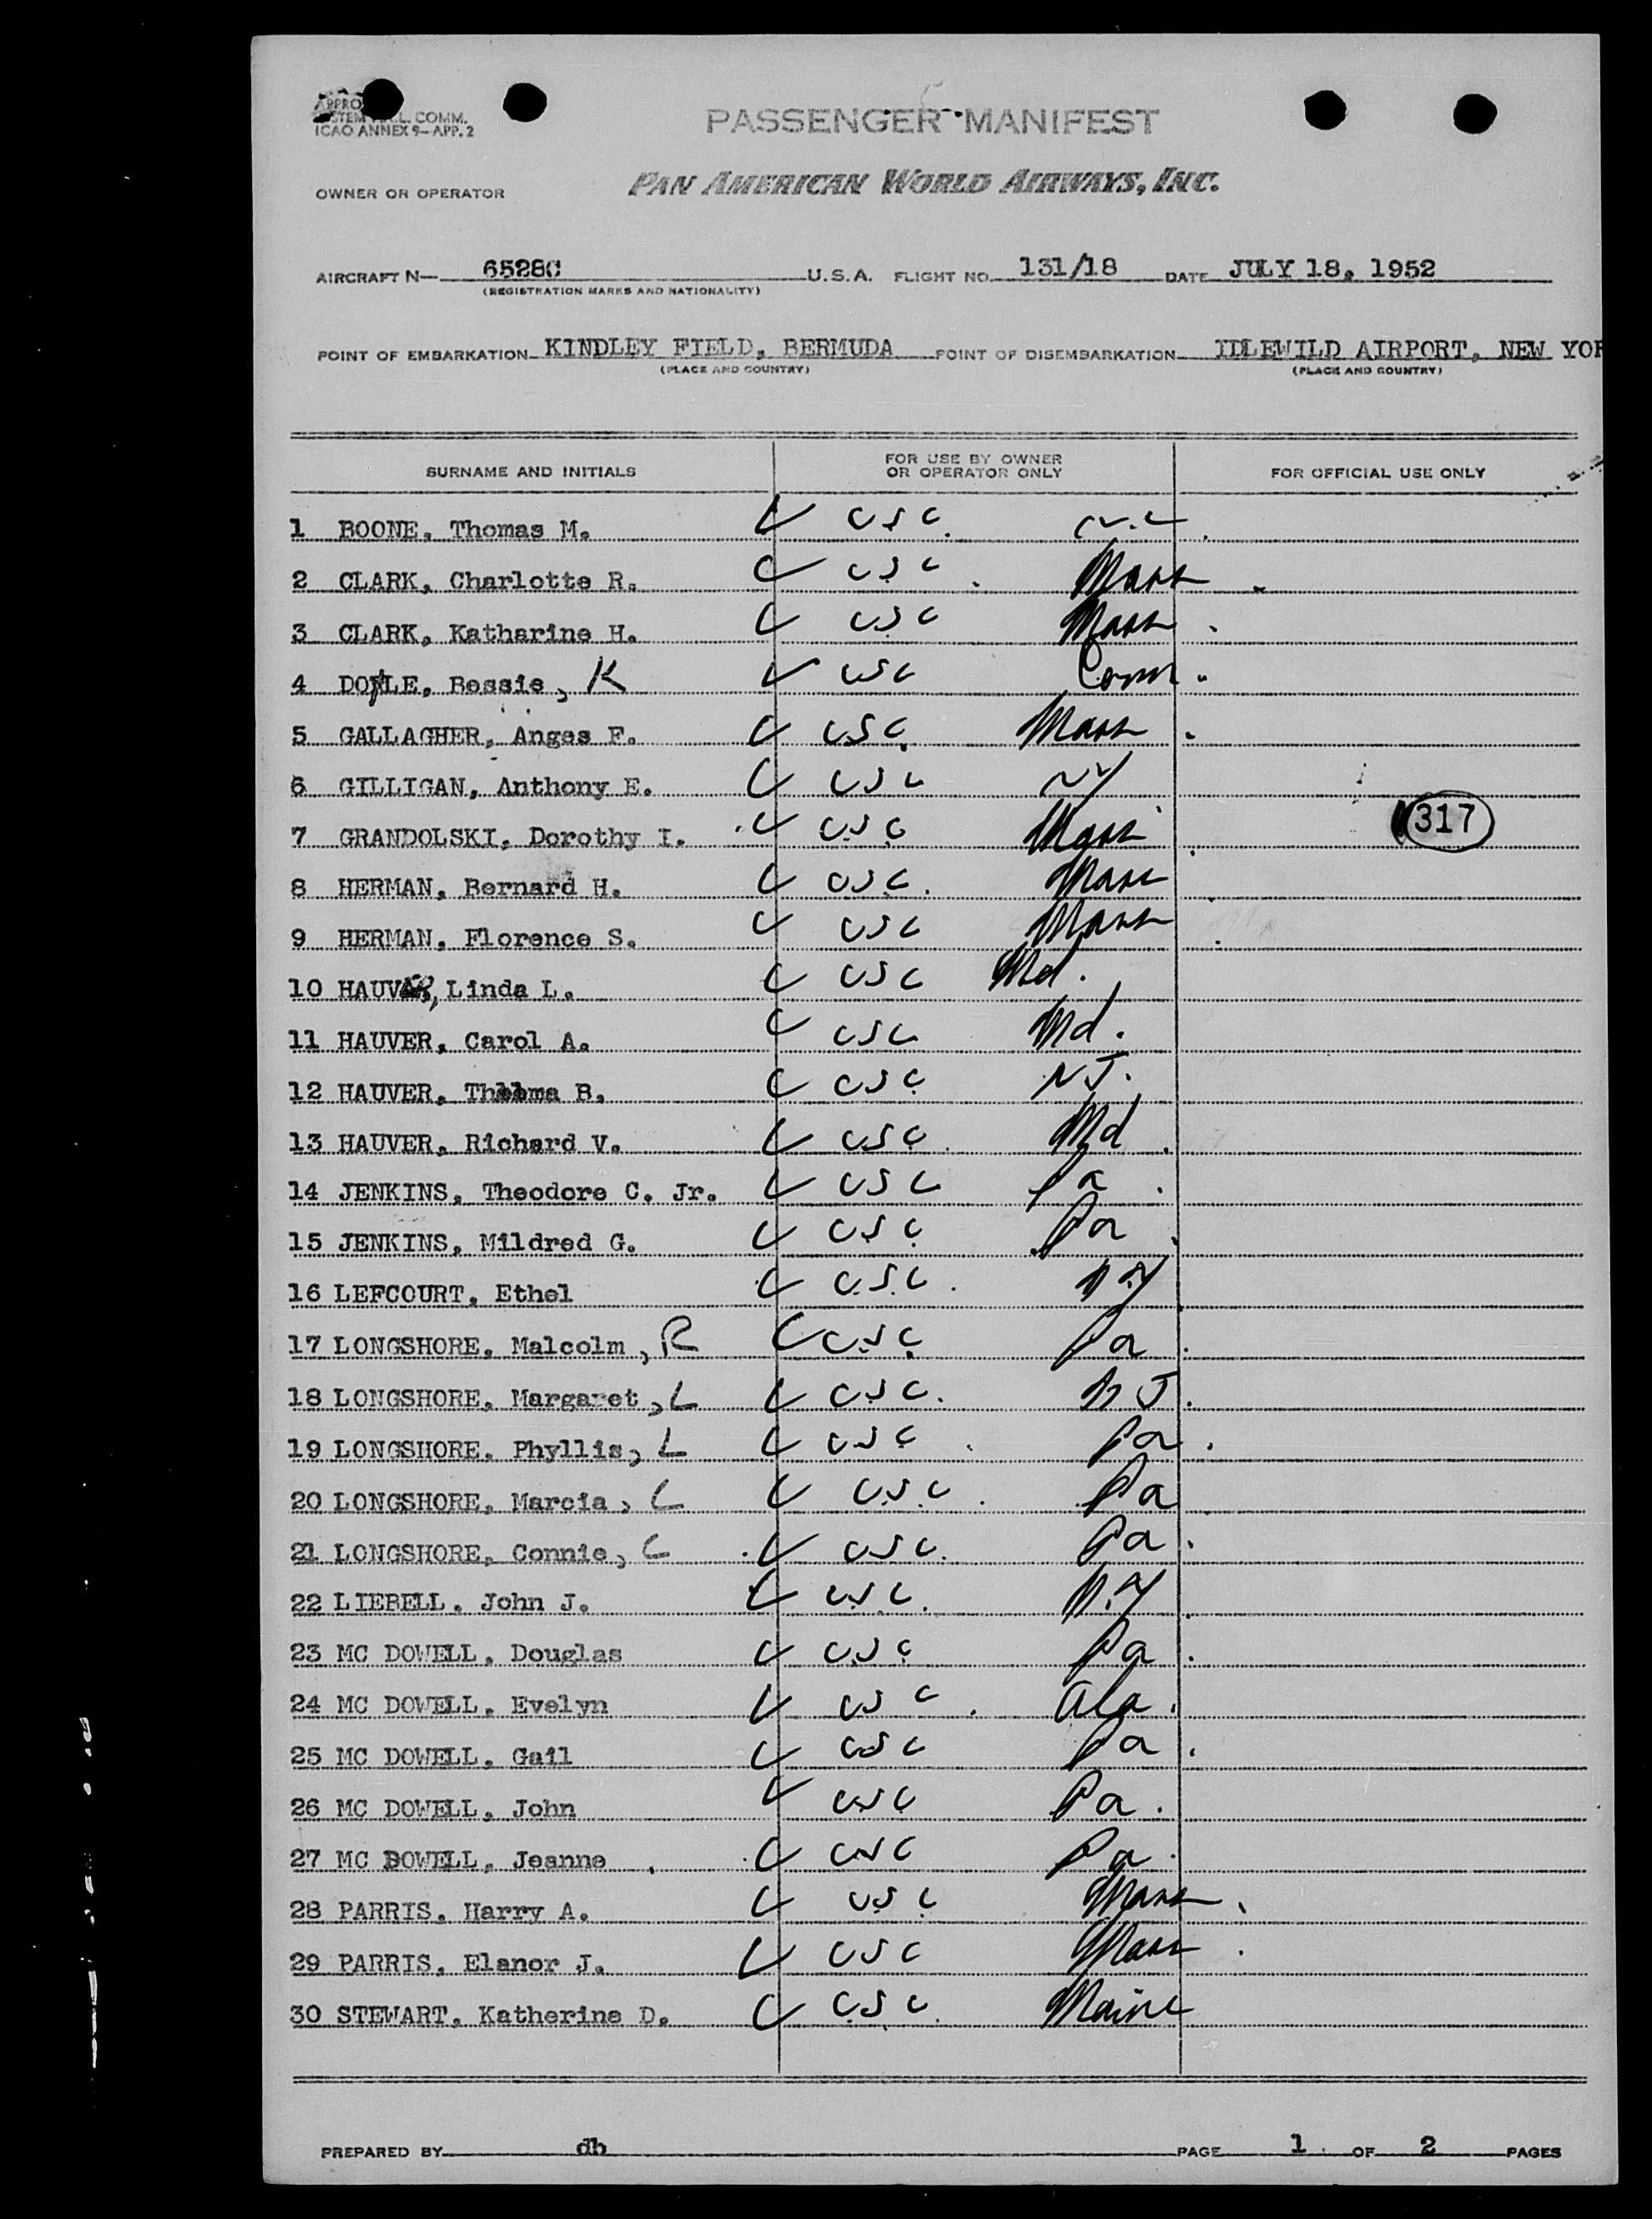 APPRO
STEM L. COMM.
ICAO ANNEX 9-APP. 2
PASSENGER MANIFEST
OWNER OR OPERATOR PAN AMERICAN WORLD AIRWAYS, INC.
AIRCRAFT N— 6528C U.S.A. FLIGHT NO. 131/18 DATE JULY 18, 1952
(REGISTRATION MARKS AND NATIONALITY)
POINT OF EMBARKATION KINDLEY FIELD, BERMUDA POINT OF DISEMBARKATION IDLEWILD AIRPORT, NEW YOR
(PLACE AND COUNTRY) (PLACE AND COUNTRY)
SURNAME AND INITIALS FOR USE BY OWNER OR OPERATOR ONLY FOR OFFICIAL USE ONLY
1 BOONE, Thomas M. USC
2 CLARK, Charlotte R. USC Mass
3 CLARK, Katharine H. USC Mass
4 DOYLE, Bessie, K USC Conn.
5 GALLAGHER, Anges F. USC Mass
6 GILLIGAN, Anthony E. USC NY
317
7 GRANDOLSKI, Dorothy I. USC Mass
8 HERMAN, Bernard H. USC Mass
9 HERMAN, Florence S. USC Mass
10 HAUVER, Linda L. USC Md.
11 HAUVER, Carol A. USC Md.
12 HAUVER, Thelma B. USC N.J.
13 HAUVER, Richard V. USC Md
14 JENKINS, Theodore C. Jr. USC Pa
15 JENKINS, Mildred G. USC Pa
16 LEFCOURT, Ethel U.S.C. N.Y
17 LONGSHORE, Malcolm, R USC Pa
18 LONGSHORE, Margaret, L USC. N J.
19 LONGSHORE, Phyllis, L USC Pa.
20 LONGSHORE, Marcia, L U.S.C. Pa
21 LONGSHORE, Connie, L USC. Pa.
22 LIEBELL, John J. USC. N.Y
23 MC DOWELL, Douglas USC Pa.
24 MC DOWELL, Evelyn USC. Ala.
25 MC DOWELL, Gail USC Pa.
26 MC DOWELL, John USC Pa.
27 MC DOWELL, Jeanne USC Pa.
28 PARRIS, Harry A. USC Mass
29 PARRIS, Elanor J. USC Mass
30 STEWART, Katherine D. USC Maine
PREPARED BY db PAGE 1 OF 2 PAGES